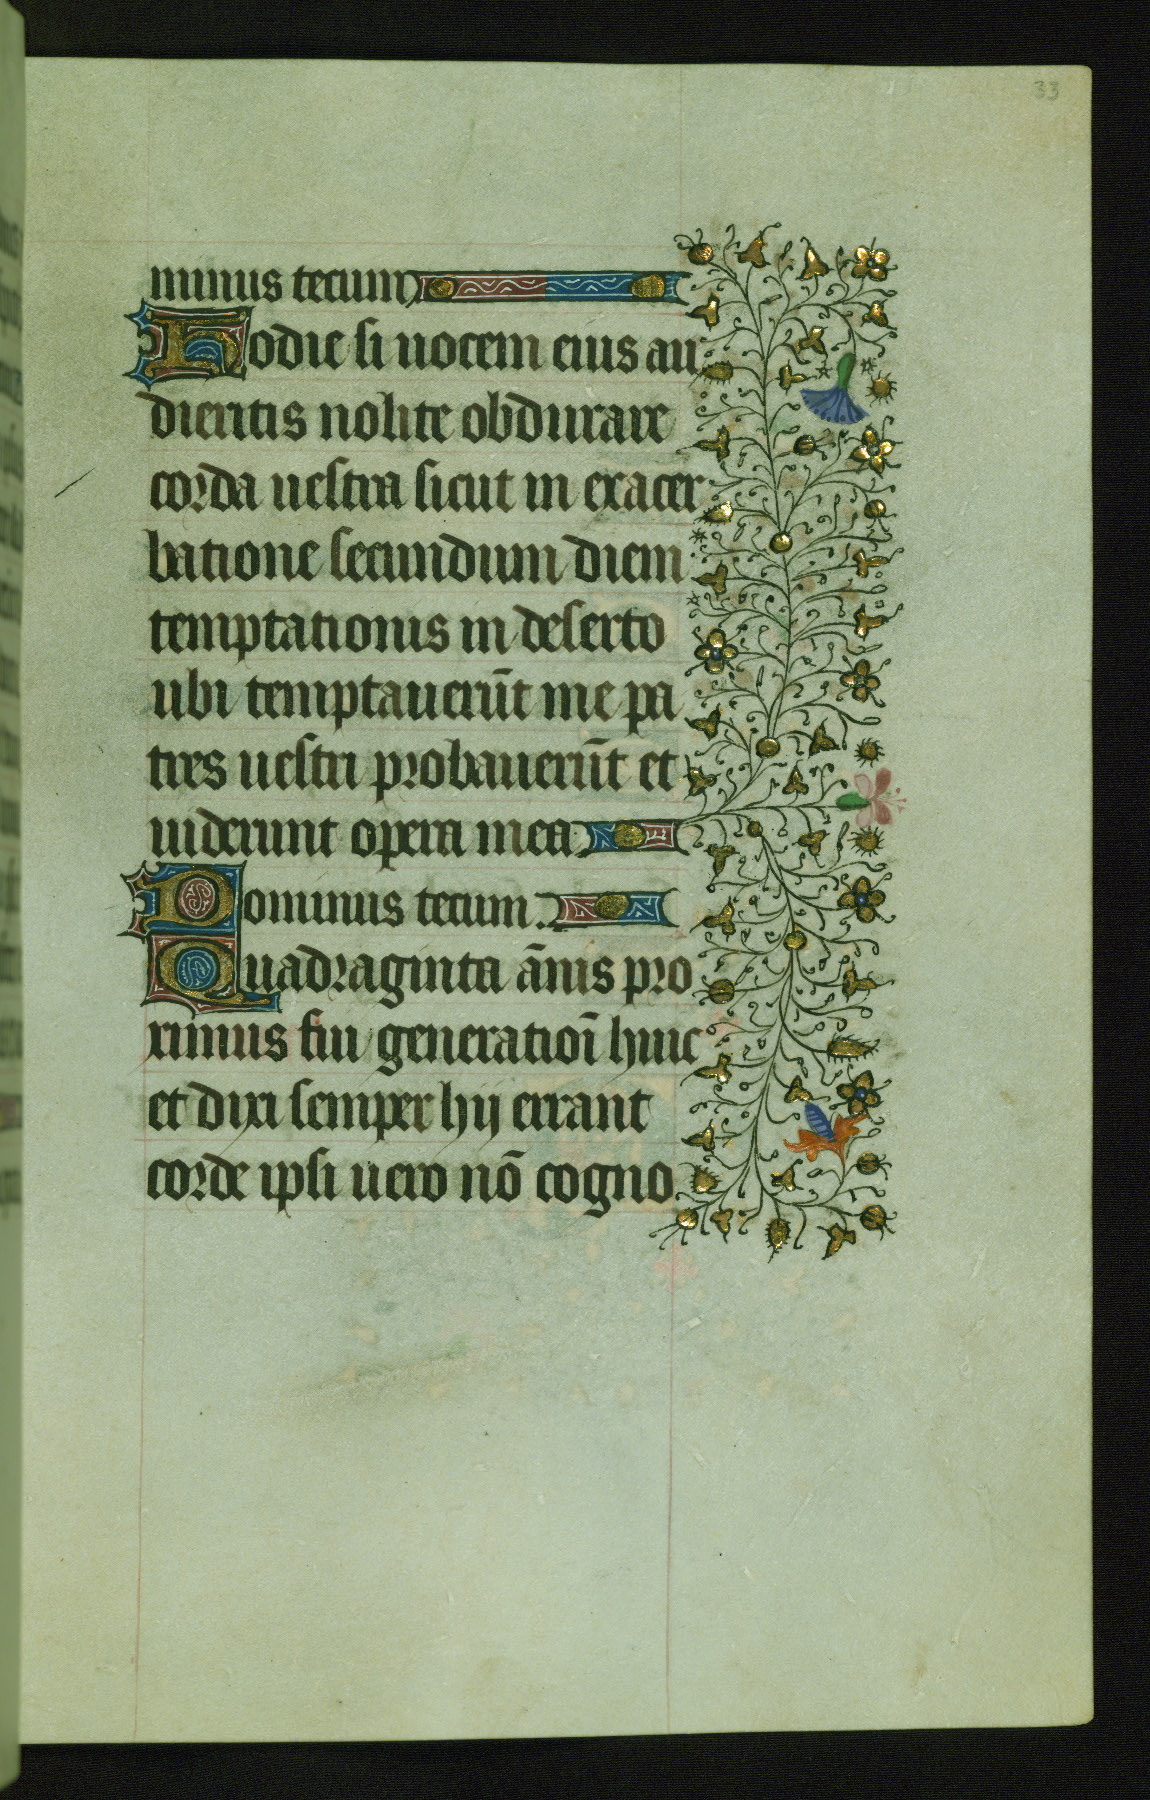 33
minus tecum
Hodie si uocem eius au
dieritis nolite obdurare
corda uestra sicut in exacer
batione secundum diem
temptationis in deserto
ubi temptauerūt me pa
tres uestri probauerūt et
uiderunt opera mea
Dominus tecum.
Quadraginta ānis pro
ximus fui generatioī huic
et dixi semper hij errant
corde ipsi uero nō cogno